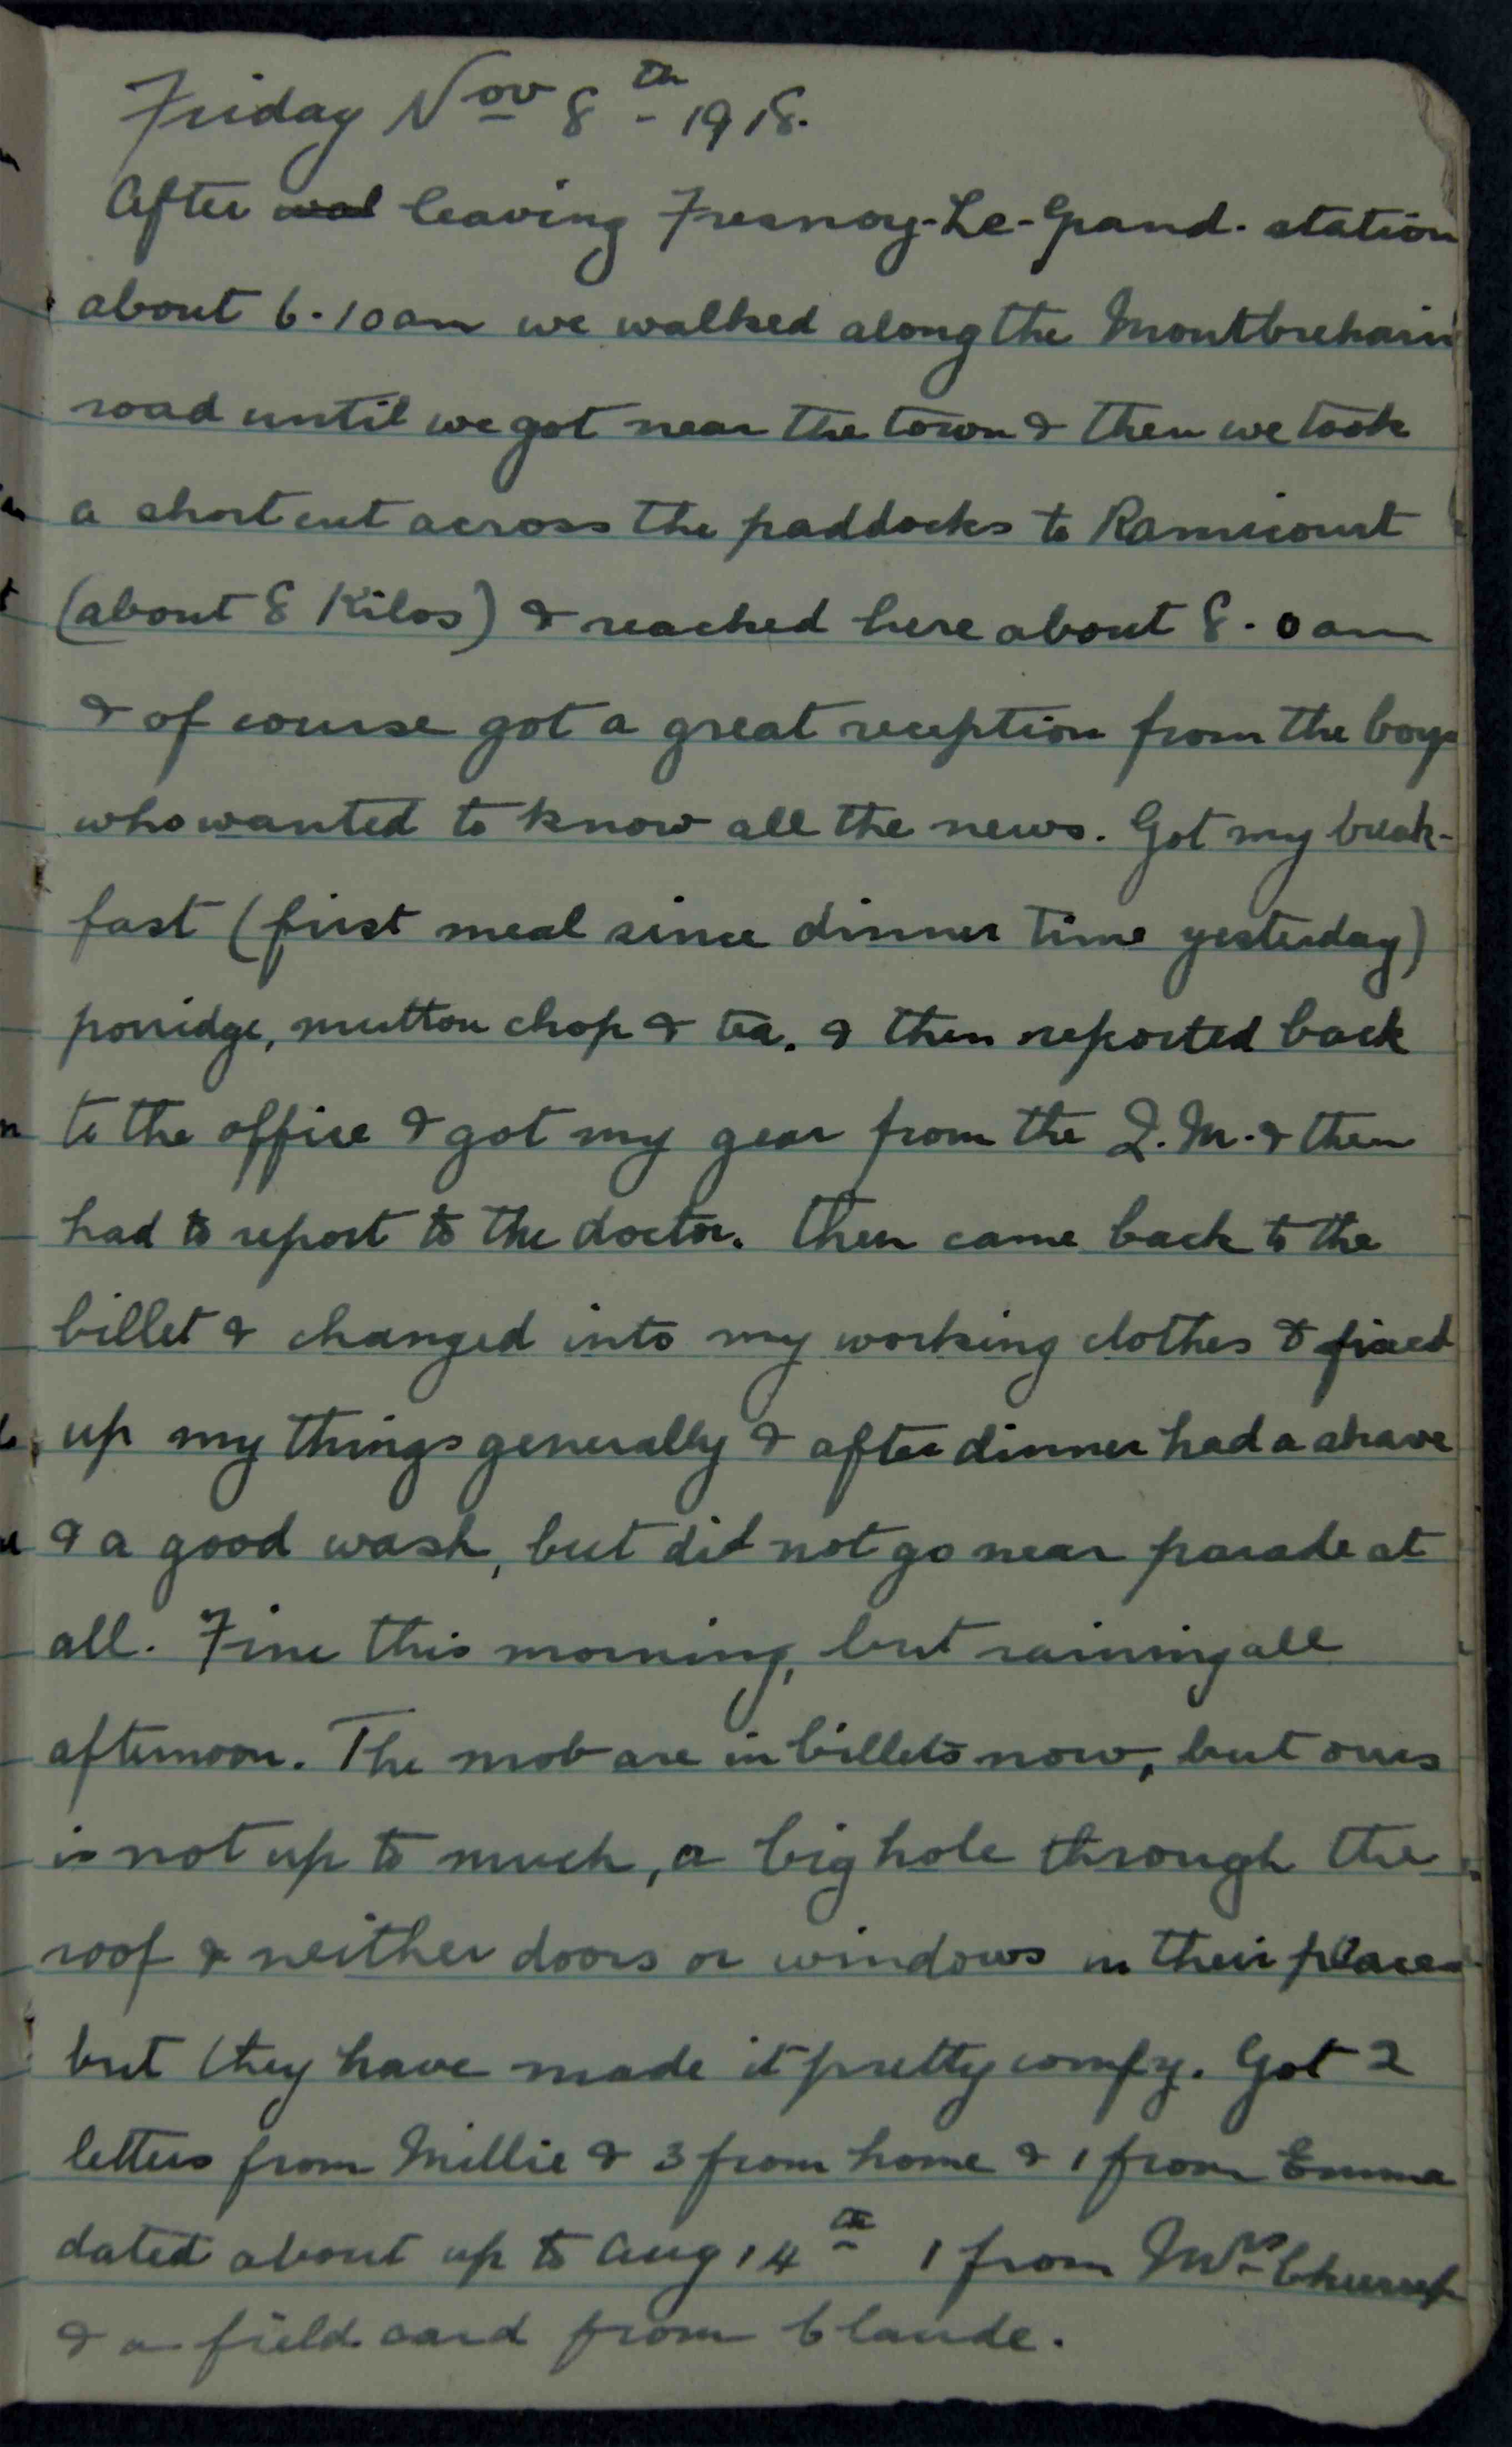 Friday Nov 8th 1918.
After wal leaving Fresnoy-Le-Grand. station
about 6.10am we walked along the Montbrehain
road until we got near the town & then we took
a short cut across the paddocks to Ramicourt
(about 8 Kilos) & reached here about 8.0am
& of course got a great reception from the boys
who wanted to know all the news. Got my break-
fast (first meal since dinner time yesterday)
porridge, mutton chop & tea. & then reported back
to the office & got my gear from the Q.M. & then
had to report to the doctor. Then came back to the
billet & changed into my working clothes & fixed
up my things generally & after dinner had a shave
& a good wash, but did not go near parade at
all. Fine this morning, but raining all
afternoon. The mob are in billets now, but ours
is not up to much, a big hole through the
roof & neither doors or windows in their places
but they have made it pretty comfy. Got 2
letters from Millie & 3 from home & 1 from Emma
dated about up to Aug 14th 1 from Mrs
& a field card from Claude.